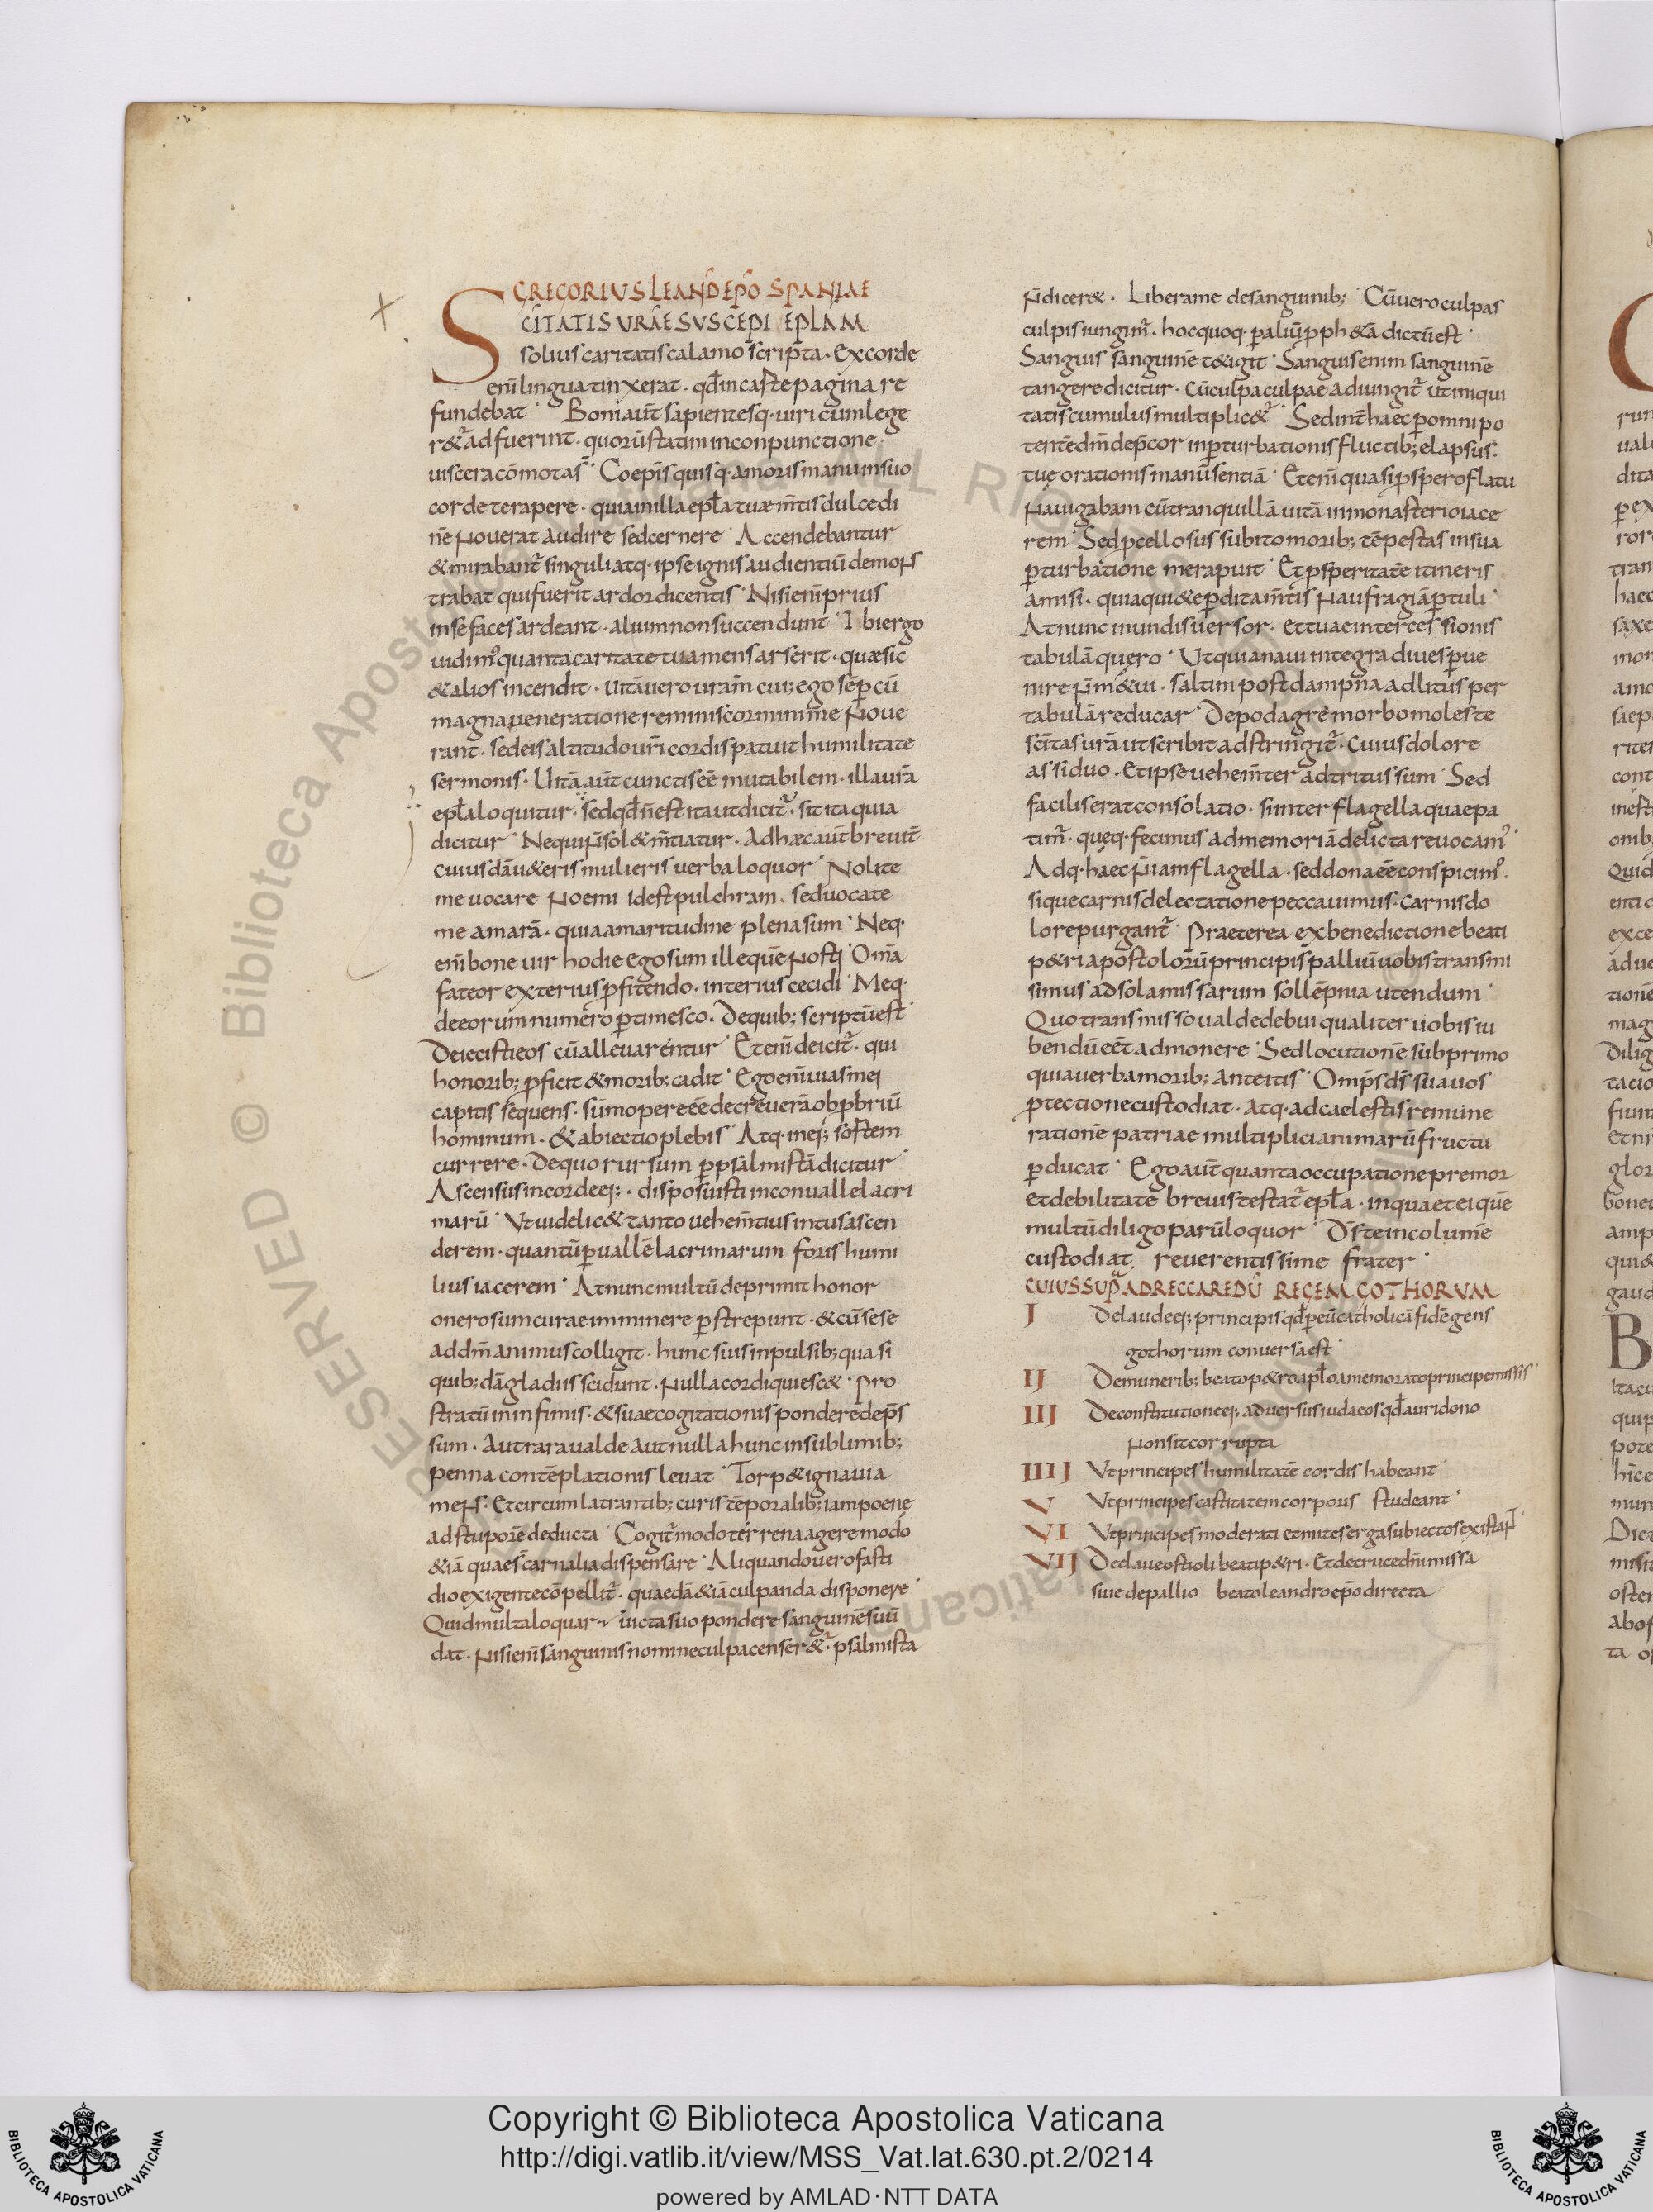 GREGORIUS LEAND EPO SPANIAE
SCITATIS URAE SUSCEPI EPLAM
solius caritatis calamo scripta. Ex corde
eni lingua tinxerat. qd in caste pagina re
fundebat Boni aut sapientesq. uiri cum lege
r& adfuerint. quoru statim in conpunctione
uiscera comota s Coepis quisq. amoris manu in suo
corde te rapere. quia in illa epla tuæ mtis dulcedi
ne nouerat audire sed cernere Accendebantur
& mirabant singuli atq. ipse ignis audientiu demons
trabat qui fuerit ardor dicentis Nisi eni prius
in se faces ardeant. alium non succendunt Ibi ergo
uidim quanta caritate tua mens arserit. quæ sic
& alios incendit. Uita uero uram cui; ego sep cu
magna ueneratione reminiscor minime noue
rant. sed eis altitudo uri cordis patuit humilitate
sermonis. Uita aut cunctis ee mutabilem. illa ura
epla loquitur. sed qd n est ita ut dicit. sit ita quia
dicitur Nequi n sol& mtiatur. Ad hæc aut breuit
cuiusda u&eris mulieris uerba loquor Nolite
me uocare Noemi idest pulchram. sed uocate
me amara. quia amaritudine plena sum Neq.
eni bone uir hodie ego sum ille que nosti Oma
fateor exterius pfitendo. interius cecidi Meq.
de eorum numero ptimesco. De quib; scriptu est
Deiecisti eos cu alleuarentur Eteni deicit. qui
honorib; pficit & morib; cadit Ego eni uias mei
capitis sequens. sumopere ee decreuera obpbriu
hominum. & abiectio plebis Atq. in ei; sortem
currere. De quo rursum p psalmista dicitur
Ascensus in corde ei;. disposuisti in conualle lacri
maru Ut uidelic& tanto uehemtius intus ascen
derem. quantu p ualle lacrimarum foris humi
lius iacerem At nunc multu deprimit honor
onerosum curae imminere pstrepunt. & cu sese
ad dm animus colligit. hunc si us inpulsib; quasi
quib; da gladiis scidunt. Nulla cordi quiesc& Pro
stratu in infimis. & suae cogitationis pondere deps
sum. Aut rara ualde aut nulla hunc in sublimib;
penna conteplationis leuat Torp& ignauia
mens. Et circum latrantib; curis teporalib; iam poene
ad stupore deducta Cogit modo terrena agere modo
& ia quae s carnalia dispensare Aliquando uero fasti
dio exigente copellit. quaeda & ia culpanda disponere
Quid multa loquar iuicta suo pondere sanguine siui
dat. Nisi eni sanguinis nomine culpa censer& psalmista
n dicer&. Libera me de sanguinib; Cu uero culpas
culpis iungim. hoc quoq. p aliu pph&a dictu est
Sanguis sanguine t&igit Sanguis enim sanguine
tangere dicitur. cu culpa culpae adiungit ut iniqui
tatis cumulus multiplic& Sed int haec p omnipo
tente dm depcor in pturbationis fluctib; elapsus.
tuę orationis manu sentia Eteni quasi pspero flatu
nauigabam cu tranquilla uita in monasterio iace
rem Sed pcellosus subito morib; tepestas in sua
pturbatione me rapuit Et psperitate itineris
amisi. quia qui&e pdita mtis naufragia ptuli
At nunc in undis uersor. et tuae intercessionis
tabula quero Ut quia naui integra diues pue
nire n m&ui. saltim post dampna ad litus per
tabula reducar De podagre morbo moleste
scitas ura ut scribit adstringit. Cuius dolore
assiduo. Et ipse uehemter adtritus sum Sed
facilis erat consolatio. si inter flagella quae pa
tim. queq. fecimus ad memoria delicta reuocam
Adq. haec n iam flagella. sed dona ee conspicim.
si que carnis delectatione peccauimus. Carnis do
lore purgant Praeterea ex benedictione beati
p&ri apostoloru principis palliu uobis transmi
simus ad sola missarum sollepnia utendum
Quo transmisso ualde debui qualiter uobis iu
bendu eet admonere Sed locutione subprimo
quia uerba morib; anteitis Omps ds sua uos
ptectione custodiat. atq. ad caelestis remune
ratione patriae multiplici animaru fructu
pducat Ego aut quanta occupatione premor
et debilitate breuis testat epla. in qua et ei que
multu diligo paru loquor Ds te incolume
custodiat reuerentissime frater
CUIUS SUPRA AD RECCAREDU REGEM GOTHORUM
I De laude ei; principis qd p eu catholica fide gens
gothorum conuersa est
II De munerib; beato p&ro aplo a memorato principe missis
III De constitutione ei; aduersus iudaeos qd auri dono
non sit corrupta
IIII Ut principes humilitate cordis habeant
V Ut principes castitatem corporis studeant
VI Ut principes moderati et mites erga subiectos existant
VII De claue ostioli beati p&ri. Et de cruce dni missa
siue de pallio beato leandro epo directa
Copyright © Biblioteca Apostolica Vaticana
http://digi.vatlib.it/view/MSS_Vat.lat.630.pt.2/0214
powered by AMLAD·NTT DATA
BIBLIOTECA APOSTOLICA VATICANA
BIBLIOTECA APOSTOLICA VATICANA